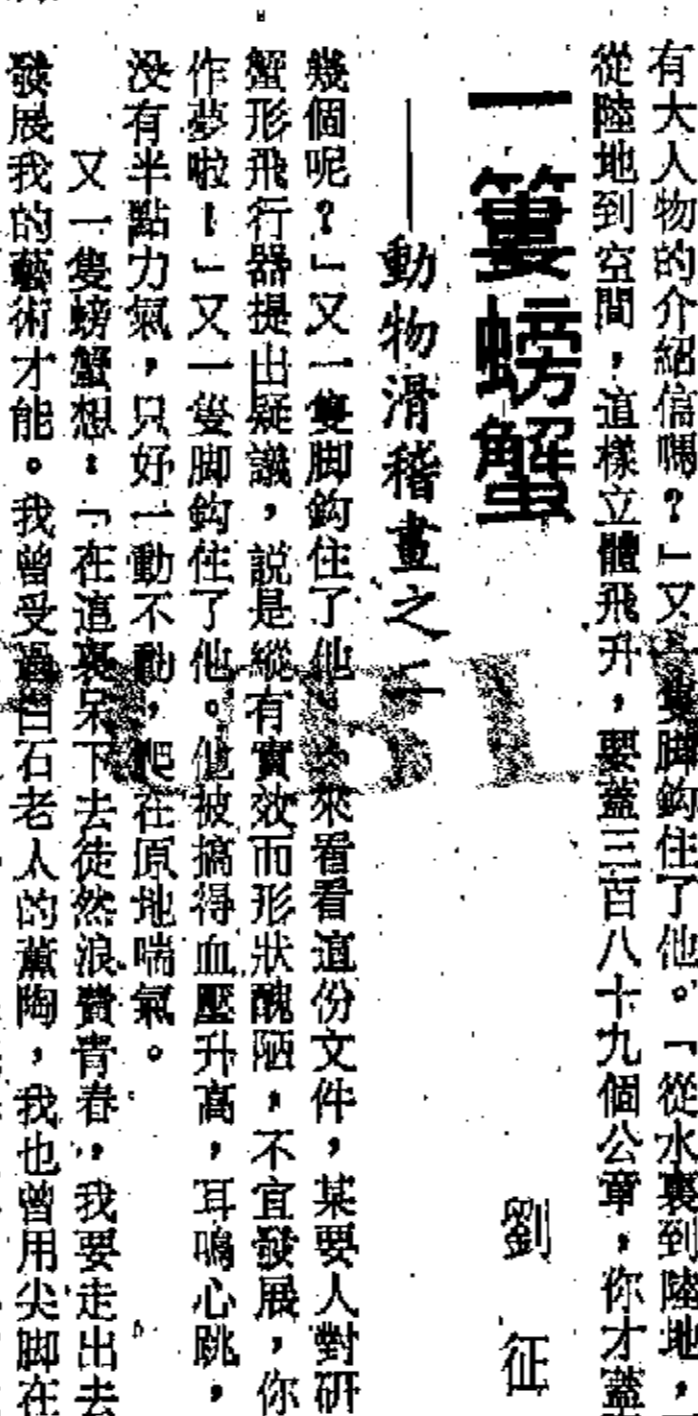 有大人物的介紹信嗎？」又一隻脚鈎住了他。「從水裏到陸地，
從陸地到空間，這樣立體飛升，要蓋三百八十九個公章，你才蓋
一簍螃蟹
——動物滑稽畫之二
劉征
幾個呢？」又一隻脚鈎住了他。來看看這份文件，某要人對研
蟹形飛行器提出疑議，説是縱有實效而形狀醜陋，不宜發展，你
作夢啦！」又一隻脚鈎住了他。他被搞得血壓升高，耳鳴心跳，
没有半點力氣，只好一動不動，爬在原地喘氣。
又一隻螃蟹想：「在這裏呆下去徒然浪費青春，我要走出去
發展我的藝術才能。我曾受過白石老人的薰陶，我也曾用尖脚在